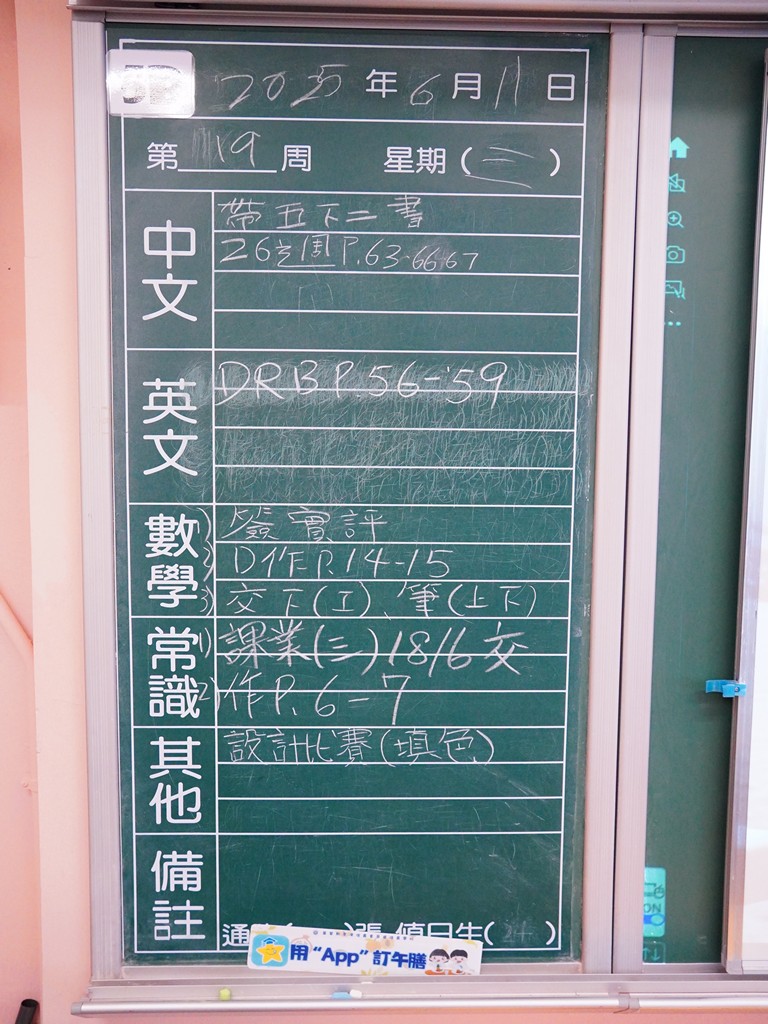 5D
2025年6月11日
第19周 星期(三)
中文
帶五下二書
26之周P.63-66-67
英文
DRB P.56-59
數學
1) 簽實評
2) D作P.14-15
3) 交下(工)、筆(上下)
常識
1) 課業(三)18/6交
2) 作P.6-7
其他
設計比賽(填色)
備註
張 值日生(24)
用“App”訂午膳
ON